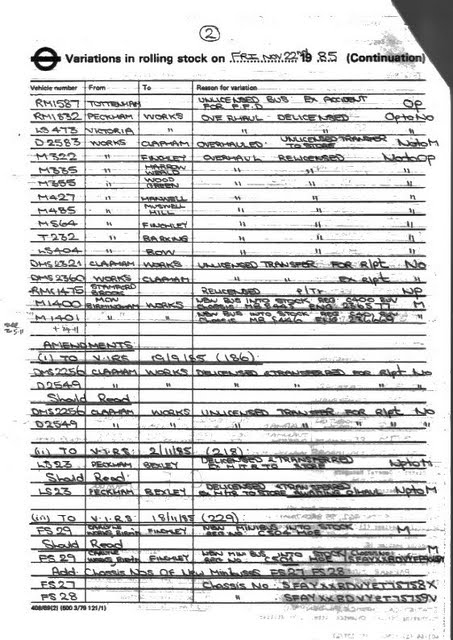 2
Variations in rolling stock on FRI NOV 22nd 1985 (Continuation)
Vehicle number From To Reason for variation
RM1587 TOTTENHAM UNLICENSED BUS EX ACCIDENT FOR F.F.D Op
RM1832 PECKHAM WORKS OVERHAUL DELICENSED Op to No
LS473 VICTORIA " " " "
D2583 WORKS CLAPHAM OVERHAULED. UNLICENSED TRANSFER TO STORE Np to M
M322 " FINCHLEY OVERHAUL RELICENSED No to Op
M335 " HARROW WEALD " " "
M355 " WOOD GREEN " " "
M427 " HANWELL " " "
M485 " MUSWELL HILL " " "
M564 " FINCHLEY " " "
T232 " BARKING " " "
LS404 " BOW " " "
DMS2321 CLAPHAM WORKS UNLICENSED TRANSFER FOR Rlpt No
DMS2360 WORKS CLAPHAM " " Ex Rlpt "
RMK1475 STAMFORD BROOK RELICENSED P/Tr Np
M1400 MCW BIRMINGHAM WORKS NEW BUS INTO STOCK REG M
M1401 " " NEW BUS INTO STOCK REG "
AMENDMENTS
(i) TO V.I.R.S 19/9/85 (186):
DMS2256 CLAPHAM WORKS DELICENSED & TRANSFERED FOR Rlpt No
D2549 " " " " " "
Should Read
DMS2256 CLAPHAM WORKS UNLICENSED TRANSFER FOR Rlpt No
D2549 " " " " " "
(ii) TO V.I.R.S. 2/11/85 (218)
LS23 PECKHAM BEXLEY DELICENSED & TRANSFERED EX M.T.R TO STORE Np to M
Should Read:
LS23 PECKHAM BEXLEY DELICENSED & TRANSFERED EX M.TR TO STORE AWAITING O'HAUL Np to M
(iii) TO V.I.R.S. 18/11/85 (229)
FS29 CARLYLE WORKS FINCHLEY NEW MINIBUS INTO STOCK REG NO C504 M
Should Read
FS29 CARLYLE WORKS FINCHLEY NEW MINI BUS INTO STOCK REG NO M
Add Chassis Nos Of New Minibuses FS27 FS28
FS27 Chassis No:
FS28 "
408/69(2) (500 3/79 121/1)